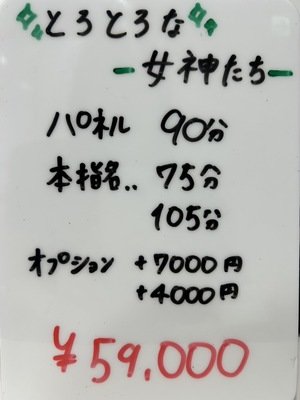 とろとろな
ー女神たちー
パネル 90分
本指名.. 75分
105分
オプション +7000円
+4000円
¥59,000